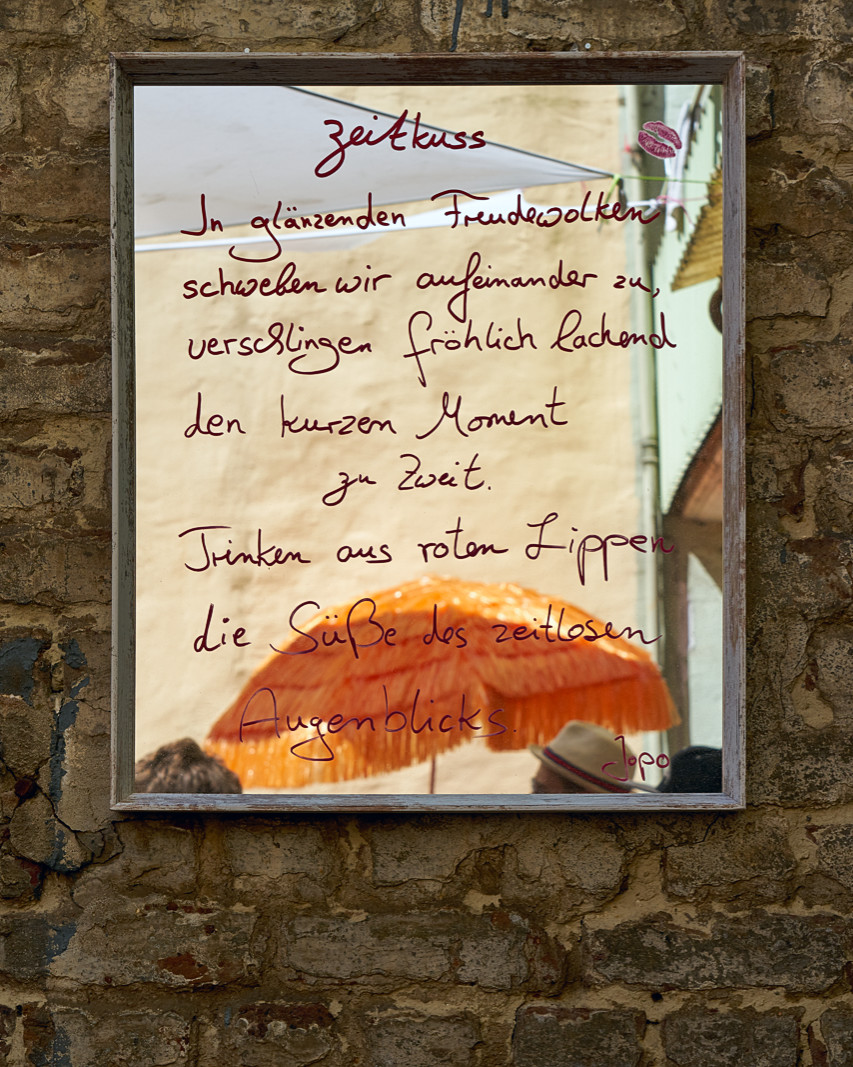 Zeitkuss
In glänzenden Freudewolken
schweben wir aufeinander zu,
verschlingen fröhlich lachend
den kurzen Moment
zu Zweit.
Trinken aus roten Lippen
die Süße des zeitlosen
Augenblicks.
Jopo